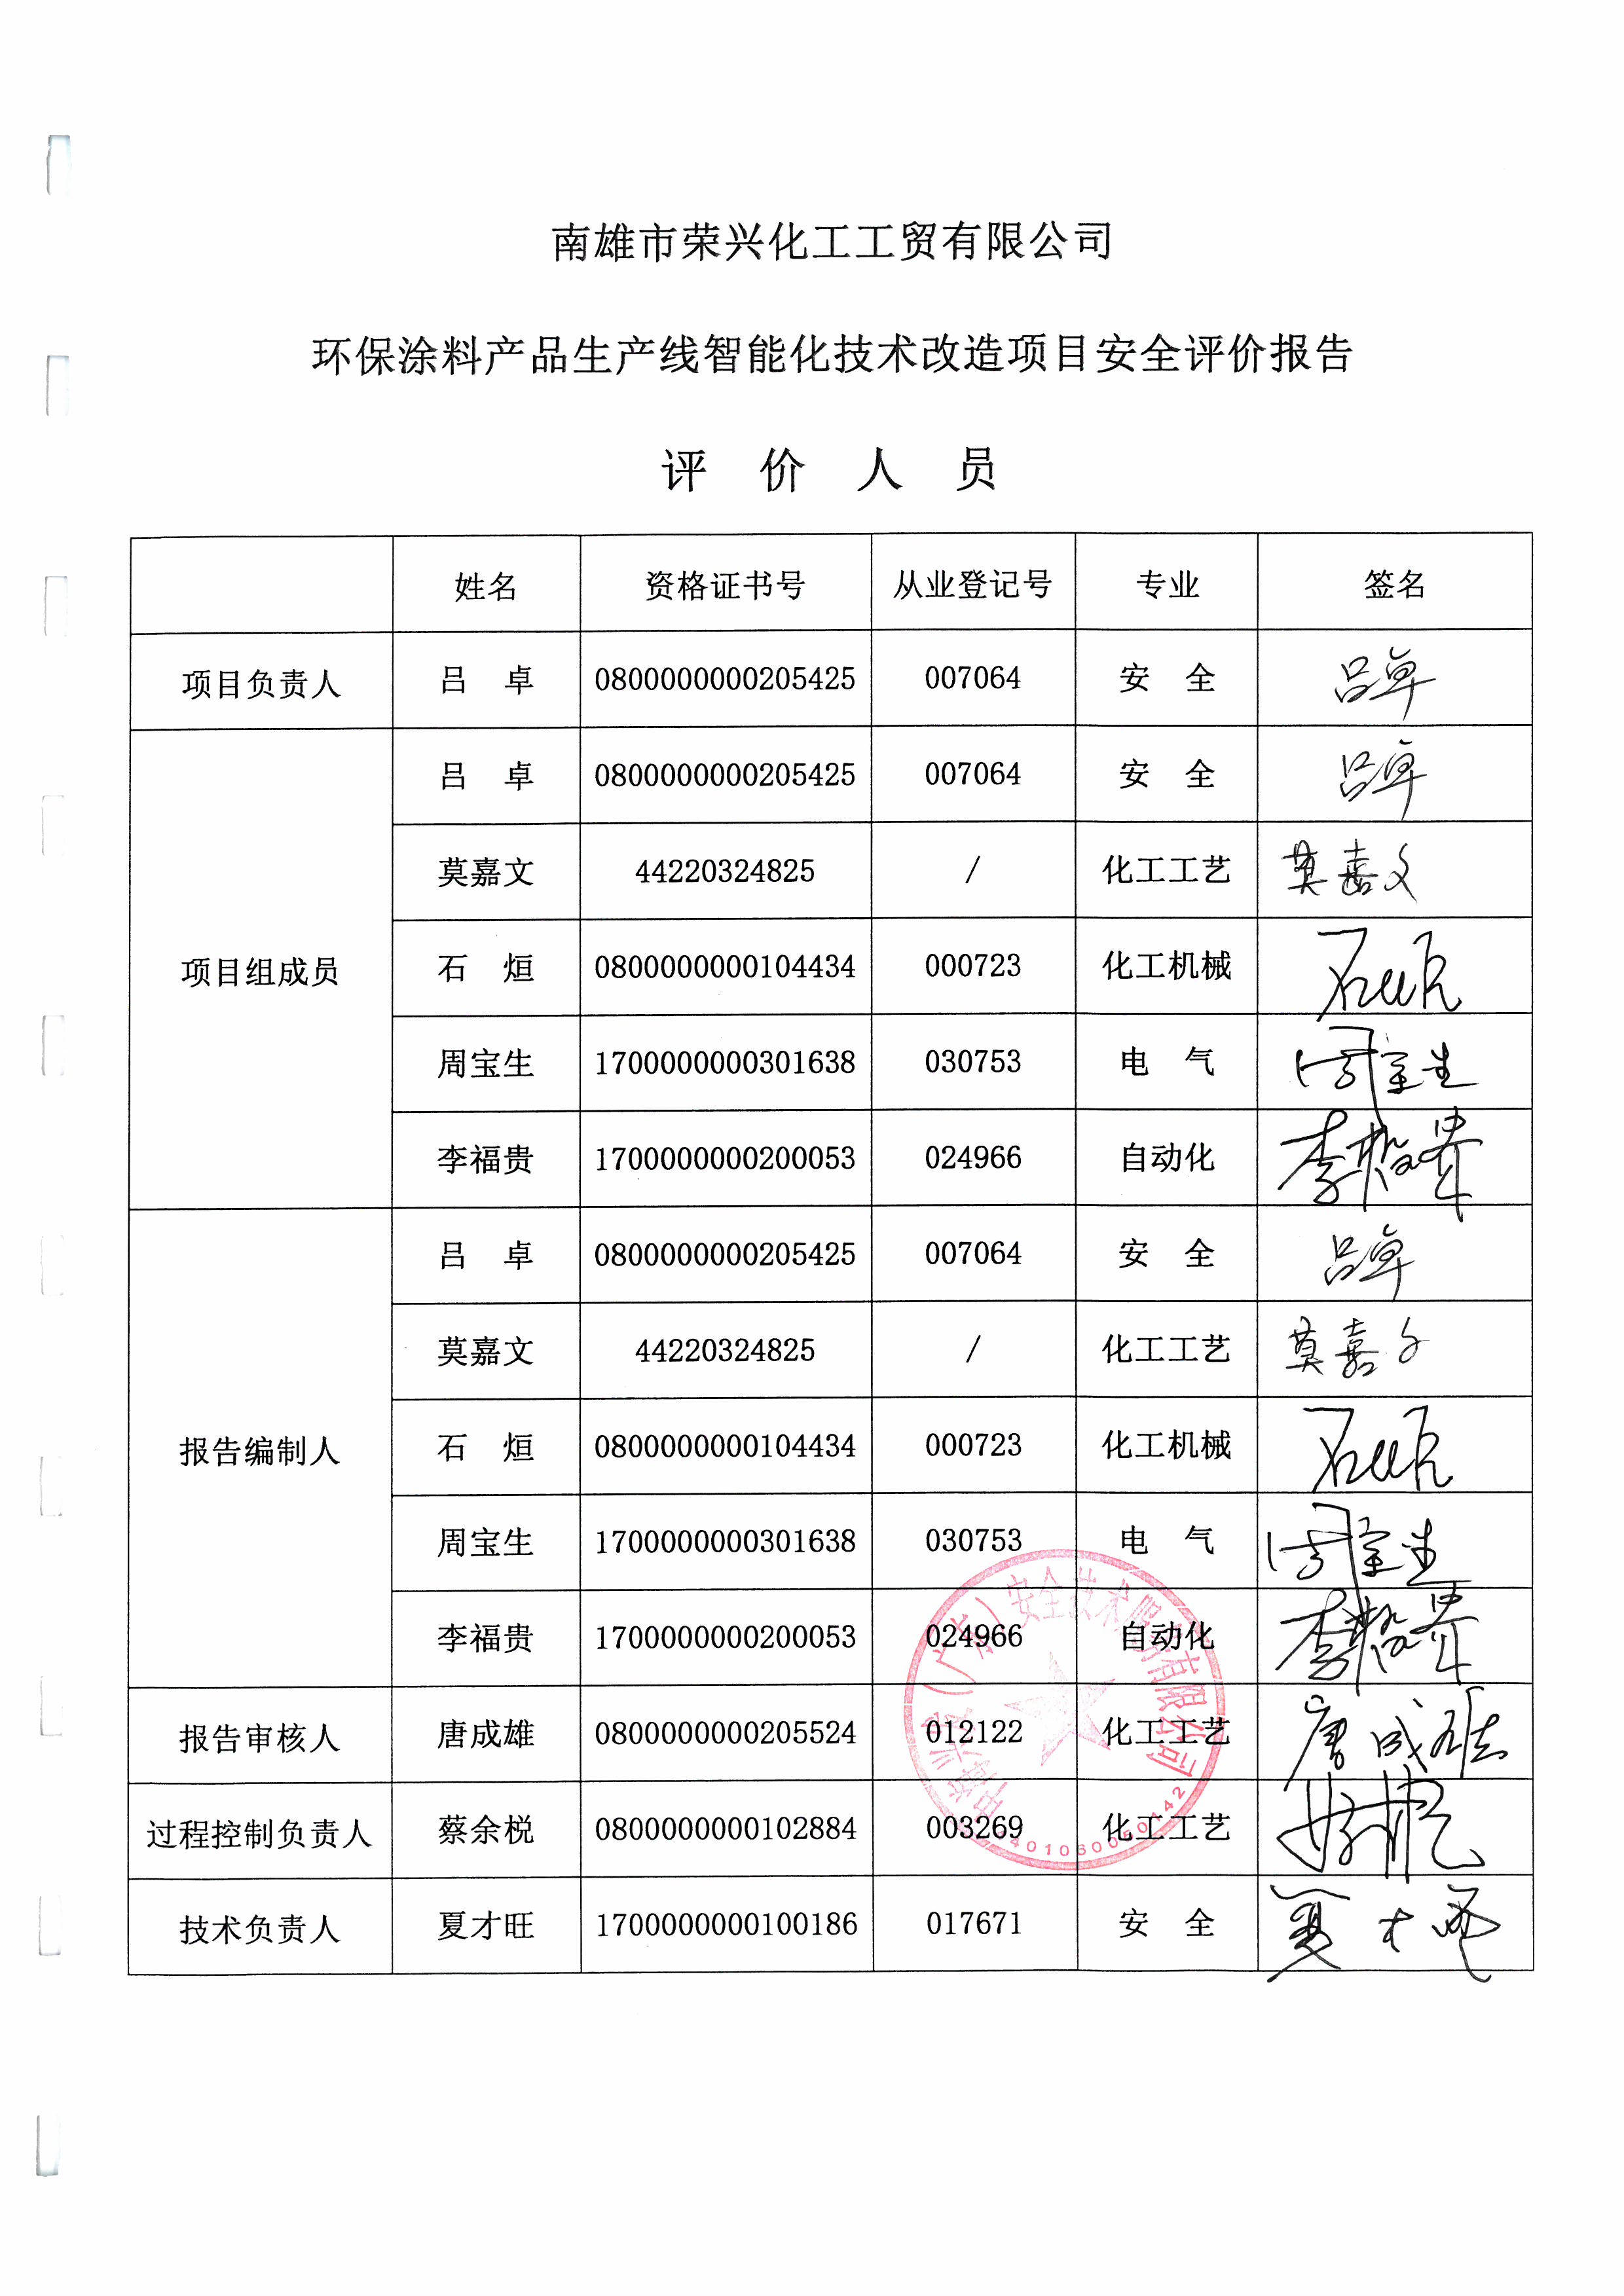 南雄市荣兴化工工贸有限公司
环保涂料产品生产线智能化技术改造项目安全评价报告
评 价 人 员
姓名 资格证书号 从业登记号 专业 签名
项目负责人 吕 卓 0800000000205425 007064 安 全 吕卓
项目组成员 吕 卓 0800000000205425 007064 安 全 吕卓
莫嘉文 44220324825 / 化工工艺 莫嘉文
石 烜 0800000000104434 000723 化工机械 石烜
周宝生 1700000000301638 030753 电 气 周宝生
李福贵 1700000000200053 024966 自动化 李福贵
报告编制人 吕 卓 0800000000205425 007064 安 全 吕卓
莫嘉文 44220324825 / 化工工艺 莫嘉文
石 烜 0800000000104434 000723 化工机械 石烜
周宝生 1700000000301638 030753 电 气 周宝生
李福贵 1700000000200053 024966 自动化 李福贵
报告审核人 唐成雄 0800000000205524 012122 化工工艺 唐成雄
过程控制负责人 蔡余棁 0800000000102884 003269 化工工艺
技术负责人 夏才旺 1700000000100186 017671 安 全 夏才旺
(广东)安全技术服务有限公司